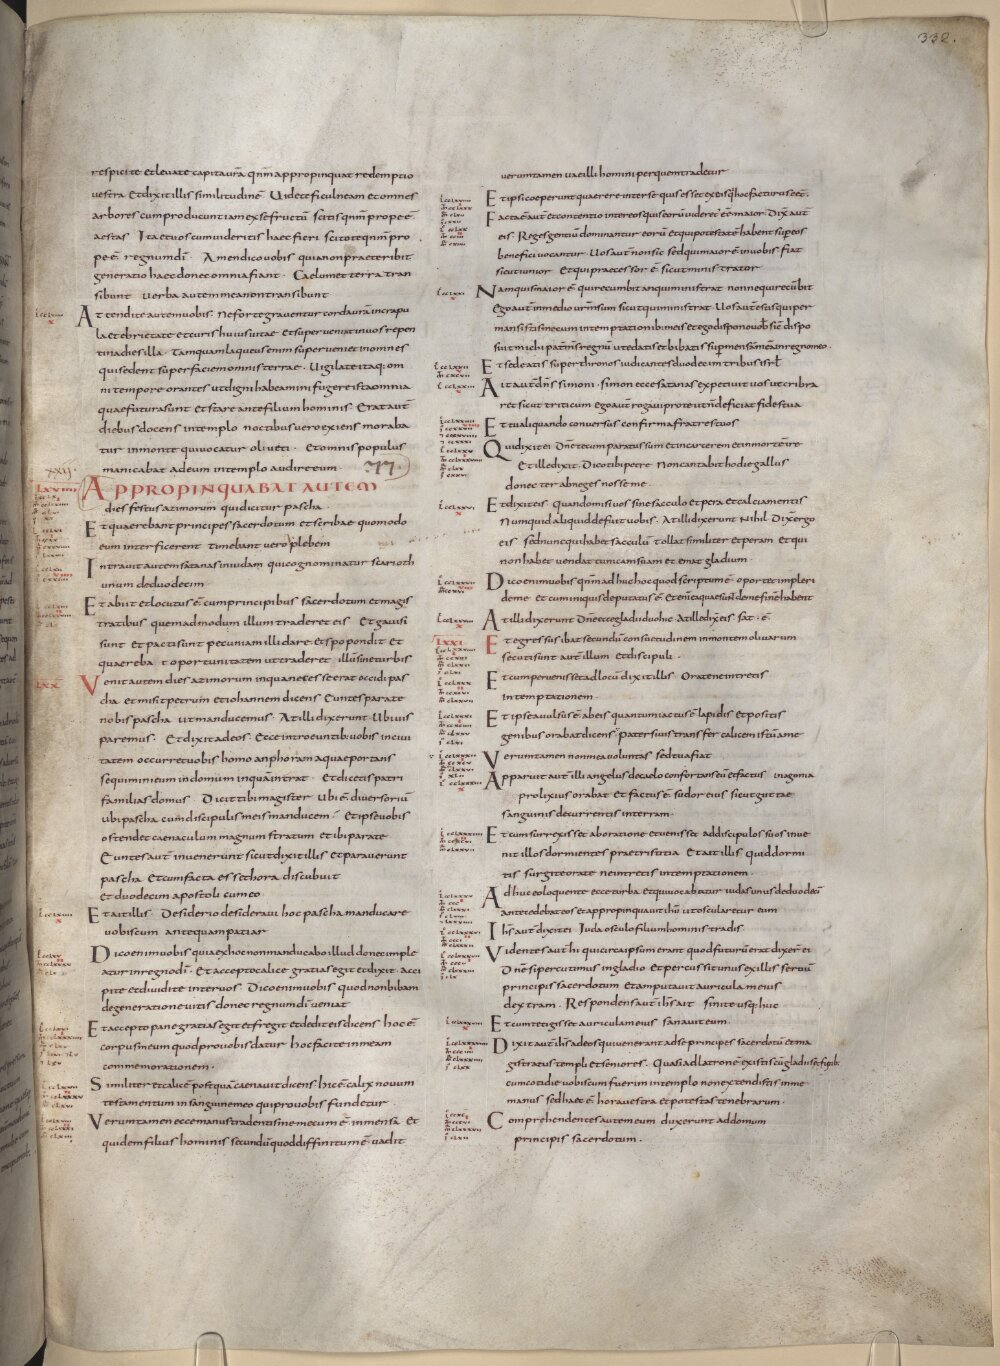 332.
respicite et levate capita vr̄a qn̄m appropinquat redemptio
vestra Et dixit illis similitudinē Videte ficulneam et omnes
arbores cum producunt iam ex se fructū scitis qn̄m prope ē
aestas Ita et vos cum videritis haec fieri scitote qn̄m pro
pe ē regnum dī · Amen dico vobis quia non praeteribit
generatio haec donec omnia fiant · Caelum et terra tran
sibunt verba autem mea non transibunt
Attendite autem vobis · Ne forte graventur corda vr̄a in crapu
la et ebrietate et curis huius vitae · Et superveniat in vos repen
tina dies illa · Tamquam laqueus enim superveniet in omnes
qui sedent super faciem omnis terrae · Vigilate itaq; om
ni tempore orantes ut digni habeamini fugere ista omnia
quae futura sunt et stare ante filium hominis · Erat aut̄
diebus docens in templo noctibus vero exiens moraba
tur in monte qui vocatur oliveti · Et omnis populus
manicabat ad eum in templo audire eum ·
XXII.
APPROPINQUABAT AUTEM
dies festus azimorum qui dicitur pascha
Et quaerebant principes sacerdotum et scribae quomodo
eum interficerent timebant vero plebem
Intravit autem satanas in iudam qui cognominatur scarioth
unum de duodecim
Et abiit et locutus ē cum principibus sacerdotum et magis
tratibus quemadmodum illum traderet eis Et gavisi
sunt et pacti sunt pecuniam illi dare · Et spopondit Et
quaerebat oportunitatem ut traderet illum sine turbis
LXX
Venit autem dies azimorum in qua necesse erat occidi pas
cha et misit petrum et iohannem dicens Euntes parate
nobis pascha ut manducemus · At illi dixerunt Ubi vis
paremus · Et dixit ad eos · Ecce introeuntib; vobis in civi
tatem occurret vobis homo amphoram aquae portans
sequimini eum in domum in quā intrat Et dicetis patri
familias domus Dicit tibi magister Ubi ē diversoriū
ubi pascha cum discipulis meis manducem Et ipse vobis
ostendet caenaculum magnum stratum et ibi parate
Euntes aut̄ invenerunt sicut dixit illis et paraverunt
pascha Et cum facta esset hora discubuit
et duodecim apostoli cum eo
Et ait illis Desiderio desideravi hoc pascha manducare
vobiscum antequam patiar
Dico enim vobis quia ex hoc non manducabo illud donec imple
atur in regno dī · Et accepto calice gratias egit et dixit · Acci
pite et dividite inter vos Dico enim vobis quod non bibam
de generatione vitis donec regnum dī veniat
Et accepto pane gratias egit et fregit et dedit eis dicens hoc ē
corpus meum quod pro vobis datur hoc facite in meam
commemorationem ·
Similiter et calicē postquā caenavit dicens hic ē calix novum
testamentum in sanguine meo qui pro vobis fundetur
Veruntamen ecce manus tradentis me mecum ē in mensa Et
quidem filius hominis secundū quod diffinitum ē vadit
veruntamen vae illi homini per quem tradetur
Et ipsi coeperunt quaerere inter se quis esset ex eis q̄ hoc facturus eēt ·
Facta ē aut̄ et contentio inter eos quis eorū videret̄ eē maior Dix̄ aut̄
eis · Reges gentiū dominantur eorū et qui potestatē habent sup eos
benefici vocantur · Vos aut̄ non sic sed qui maior ē in vobis fiat
sicut iunior · Et qui praecessor ē sicut ministrator
Nam quis maior ē qui recumbit an qui ministrat nonne qui recūbit
Ego aut̄ in medio vr̄m sum sicut qui ministrat Vos aut̄ estis qui per
mansistis mecum in temptationib; meis et ego dispono vob̄ sic̄ dispo
suit mihi pat̄ m̄s regnū ut edatis et bibatis sup̄ mensā meā in regno meo ·
Et sedeatis super thronos iudicantes duodecim tribus isrl̄
Ait aut̄ dn̄s simoni · simon ecce satanas expetivit vos ut cribra
ret sicut triticum ego aut̄ rogavi pro te ut n̄ deficiat fides tua
Et tu aliquando conversus confirma fratres tuos
Qui dixit ei Dn̄e tecum paratus sum et in carcerem et in mortē ire
Et ille dixit · Dico tibi petre Non cantabit hodie gallus
donec ter abneges nosse me
Et dixit eis Quando misi vos sine sacculo et pera et calciamentis
numquid aliquid defuit vobis At illi dixerunt Nihil Dix̄ ergo
eis sed nunc qui habet sacculū tollat similiter et peram Et qui
non habet vendat tunicam suam et emat gladium
Dico enim vobis qn̄m adhuc hoc quod scriptum ē oportet impleri
de me Et cum iniquis deputatus ē Et eni ea quae sunt de me finē habent
At illi dixerunt Dn̄e ecce gladii duo hic At ille dix̄ eis Sat ē
LXXI
Et egressus ibat secundū consuetudinem in montem olivarum
secuti sunt aut̄ illum et discipuli ·
Et cum pervenisset ad locū dixit illis Orate ne intretis
in temptationem
Et ipse avulsus ē ab eis quantum iactus ē lapidis Et positis
genibus orabat dicens · Pater si vis transfer calicem istū a me
Veruntamen non mea voluntas sed tua fiat
Apparuit aut̄ illi angelus de caelo confortans eū et factus in agonia
prolixius orabat Et factus ē sudor eius sicut guttae
sanguinis decurrentis in terram ·
Et cum surrexisset ab oratione et venisset ad discipulos suos inve
nit illos dormientes prae tristitia Et ait illis quid dormi
tis surgite orate ne intretis in temptationem
Adhuc eo loquente ecce turba Et qui vocabatur iudas unus de duodeci
antecedebat eos et appropinquavit ihū ut oscularetur eum
Ihs̄ aut̄ dixit ei Juda osculo filium hominis tradis
Videntes aut̄ hi qui circa ipsum erant quod futurū erat dixer̄ ei
Dn̄e si percutimus in gladio Et percussit unus ex illis servū
principis sacerdotum Et amputavit auricula m eius
dextram · Respondens aut̄ ihs̄ ait sinite usq; huc
Et cum tetigisset auriculam eius sanavit eum
Dixit aut̄ ihs̄ ad eos qui venerant ad se principes sacerdotū et ma
gistratus templi et seniores · Quasi ad latronē existis cū gladiis et fustib;
cum cotidie vobiscum fuerim in templo non extendistis in me
manus sed haec ē hora vestra et potestas tenebrarum ·
Comprehendentes autem eum duxerunt ad domum
principis sacerdotum ·